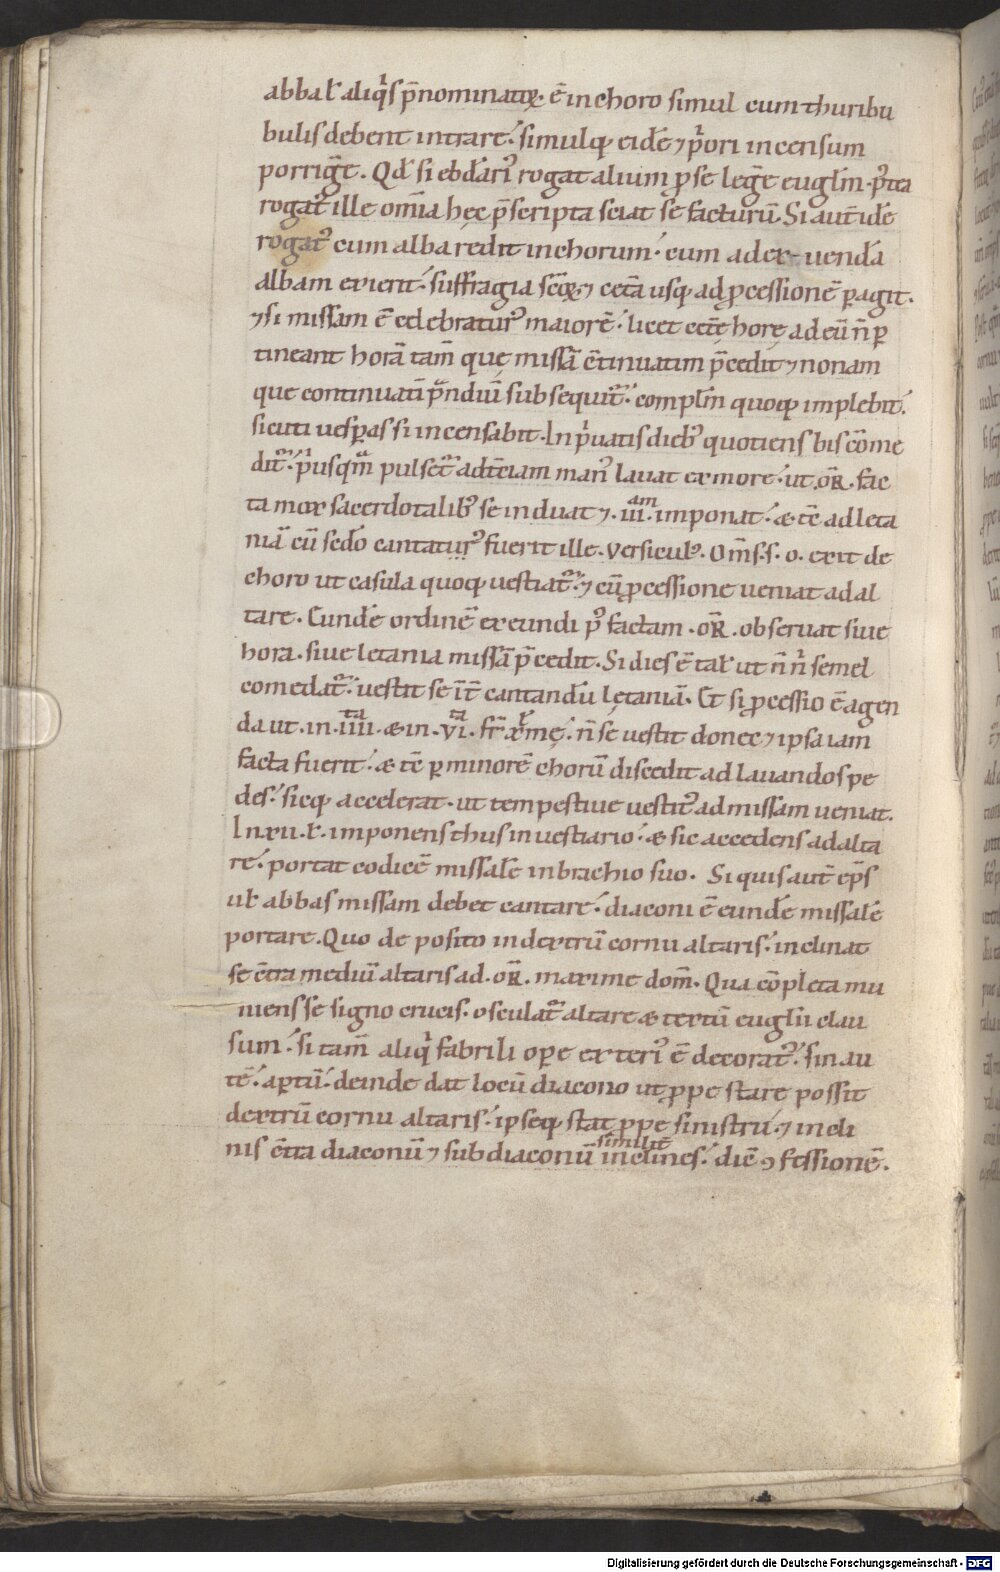 abbal̄ aliq̇s p̄nominatoꝝ ē in choro simul cum thuribu
bulis debent intrare. simulq; eidē ⁊ p̓ori incensum
porrigr̄e. Qd̄ si ebd̄ari᾿ rogat alium ꝓ se legr̄e euglm̄. p̄t̄ea
rogat᾿ ille om̄ia hęc p̄scripta sciat se facturū. Si aut̄ idē
rogat᾿ cum alba redit in chorum. cum ad exuenda
albam exierit. suffragia sc̄oꝝ ⁊ cet̄a usq; ad ꝓcessionē ꝑagit.
⁊ si missam ē celebratur᾿ maiorē. licet cetę̄ horę ad eū n̄ ꝑ
tineant horā tam̄ quę missā c̄tinuatim p̄cedit ⁊ nonam
que continuatī p̄ndiū subsequit᷑. complm̄ quoq; implebit.
sicuti uesꝑas si incensabit. In p̓uatis dieb; quotiens bis com̄e
dit᷑. p̓usqm̄ pulset᷑ ad t̄ciam man᾿ lauat ex more. ut .oR̄. fac
ta mox sacerdotalib; se induat ⁊ .iii.am imponat. & tc̄ ad leta
niā cū sedō cantatur᾿ fuerit ille. Versicul᾿. Om̄s.s. o. exit de
choro ut casula quoq; uestiat᷑. ⁊ cū ꝓcessione ueniat ad al
tare. Eundē ordinē exeundi p᾿ factam .oR̄. obseruat siue
hora. siue letania missā p̄cedit. Si dies ē tal̄ ut n̄ n̓ semel
comedat᷑. uestit se īt̄ cantandū lętaniā. Et si ꝓcessio ē agen
da ut .in .iiii.ta & in .vi.ta fr̄ x̄me᷑. n̄ se uestit donec ⁊ ipsa iam
facta fuerit. & tc̄ ꝑ minorē chorū discedit ad lauandos pe
des. sicq; accelerat. ut tempestiue uestit᾿ ad missam ueniat.
In .xii. l̄. imponens thus in uestiario. & sic accedens ad alta
re. portat codicē missalē in brachio suo. Si quis aut̄ ep̄s
ul̄ abbas missam debet cantare. diaconi ē eundē missalē
portare. Quo deposito in dextrū cornu altaris. inclinat
se c̄tra mediū altaris ad .oR̄. maxime dom̄. Qua cōpleta mu
niens se signo crucis. osculat᷑ altare & textū euglii clau
sum. si tam̄ aliq̓ fabrili oꝑe exteri᾿ ē decorat᾿. sin au
tē. aꝑtū. deinde dat locū diacono ut ꝓpe stare possit
dextrū cornu altaris. ipseq; stat ꝓpe sinistrū. ⁊ incli
nis c̄tra diaconū ⁊ subdiaconū similit̄ inclines. dic̄ ꝯfessionē.
Digitalisierung gefördert durch die Deutsche Forschungsgemeinschaft - DFG